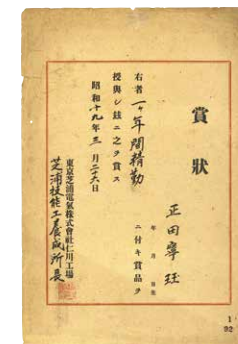 賞狀
正田寧珏
年月日生
右者一ヶ年間精勤ニ付キ賞品ヲ
授與シ玆ニ之ヲ賞ス
昭和十九年三月二十六日
東京芝浦電氣株式會社仁川工場
芝浦技能工養成所長
1
92